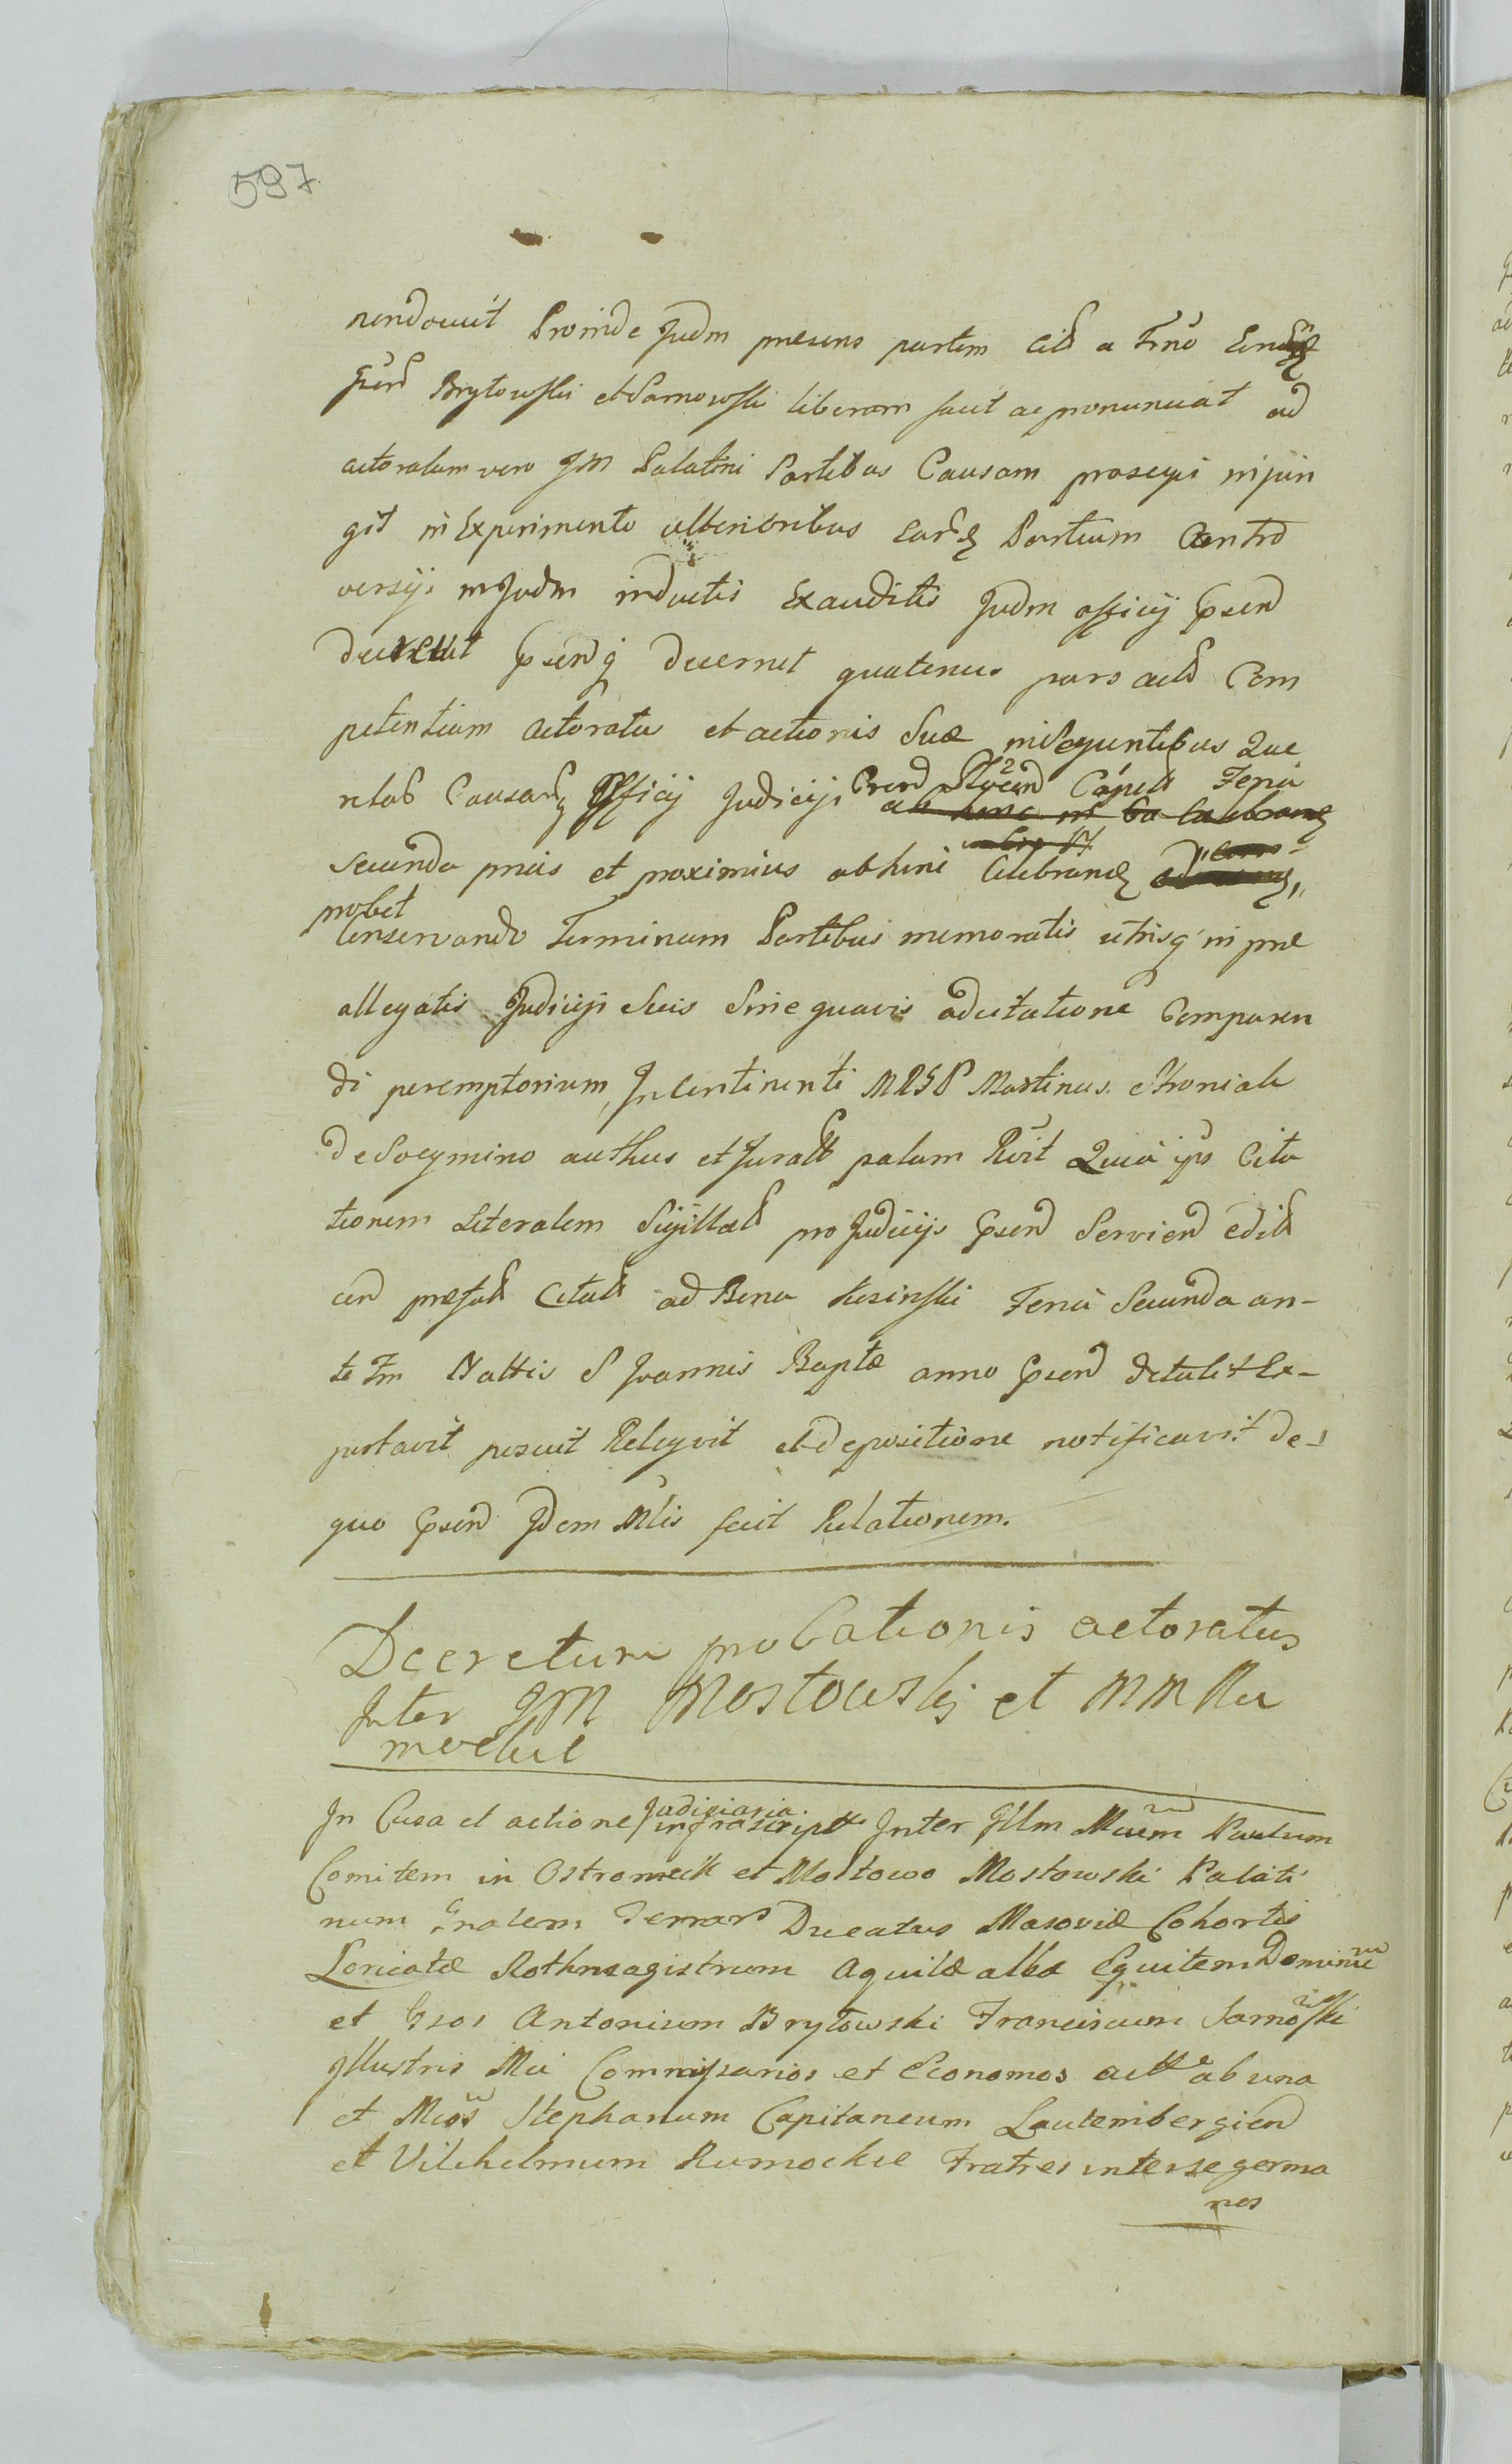 597
Proinde Judm presens partem citd a Trno
Brytowski et Sarnowski liberam facit ac pronunciat ad
actoralem vero JM Palatini Partibus Causam prosequi injun
git in Experimento ulterioribus Partium Contro
versijs in Judm inductis Exauditis Judm officij psend
decrevit decernet quatenus pars actd Com
petentiam actoratus et actionis Suæ in Sequentibus Que
relad Causarz Officij Judicijs Capud Feria
Secunda prius et proximius abhinc Celebrandz
probet
Conservando Terminum Partibus memoratis utrisq in præ
allegatis Judicijs Suis Sine quavis adcitatione Comparen
di peremptorium, In Continenti Martinus
de Soczymino authus et Juratt palam Quia ips Cita
tionem Literalem Sigillatd pro Judicijs psend Serviend edild
præfatd Citatd ad Bona Kosinski Feria Secunda an-
te Fm Nattis S Joannis Baptæ anno psend detulit Ex-
portavit posuit Relegvit et depositione notificavit de
quo psend Jdem Mlis fecit Relationem.
Decretum probationis actoratus
Inter JM Mostowskj et MM Ru
mockie
In Cusa et actione Judiciaria infrascriptt Inter Illm Mucum Paulum
Comitem in Ostromeck et Mostowo Mostowski Palati
num Gnalem Terrars Ducatus Masoviæ Cohortis
Loricatæ Rothmagistrum Aquilæ albæ Equitem Dominum
et Gsos Antonium Brytowski Franciscum Sarnowski
Illustris Mci Commissarios et Economos actt ab una
et Mcos Stephanum Capitaneum Lautembergiend
et Vilchelmum Rumockie Fratres inter se germa
nos